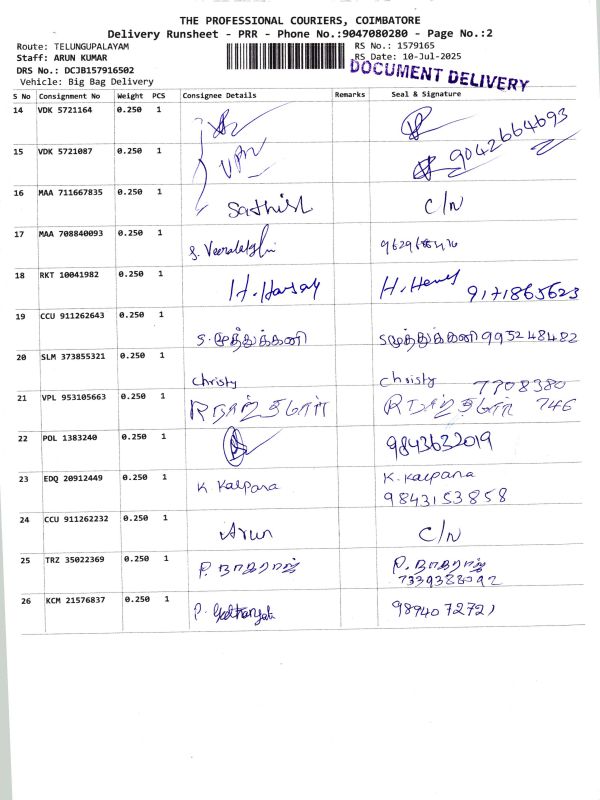 THE PROFESSIONAL COURIERS, COIMBATORE
Delivery Runsheet - PRR - Phone No.:9047080280 - Page No.:2
Route: TELUNGUPALAYAM
RS No.: 1579165
Staff: ARUN KUMAR
RS Date: 10-Jul-2025
DRS No.: DCJB157916502
DOCUMENT DELIVERY
Vehicle: Big Bag Delivery
S No Consignment No Weight PCS Consignee Details Remarks Seal & Signature
14 VDK 5721164 0.250 1
15 VDK 5721087 0.250 1 9042664693
16 MAA 711667835 0.250 1 Sathish C/N
17 MAA 708840093 0.250 1
18 RKT 10041982 0.250 1 9171865623
19 CCU 911262643 0.250 1 S. முத்துக்கனி S முத்துக்கனி 995248482
20 SLM 373855321 0.250 1 Christy Christy 7708380
21 VPL 953105663 0.250 1 746
22 POL 1383240 0.250 1 9843632019
23 EDQ 20912449 0.250 1 K Kalpana K. Kalpana
9843153858
24 CCU 911262232 0.250 1 Arun C/N
25 TRZ 35022369 0.250 1 P. நாகராஜ் P. நாகராஜ்
7339388092
26 KCM 21576837 0.250 1 9894072721